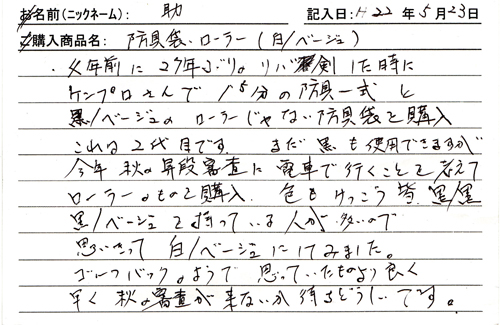 お名前(ニックネーム): 助 記入日: H22年5月23日
ご購入商品名: 防具袋.ローラー(白/ベージュ)
4年前に27年ぶりのリバ剣した時に
ケンプロさんで 自分の防具一式と
黒/ベージュのローラーじゃない防具袋を購入
これは2代目です。まだ黒も使用できますが
今年秋の昇段審査に電車で行くことを考えて
ローラーのものを購入. 色もけっこう皆 黒/黒
黒/ベージュを持っている人が多いので
思いきって白/ベージュにしてみました。
ゴルフバックのようで思っていたものより良く
早く秋の審査が来ないか待ちどうしいです。